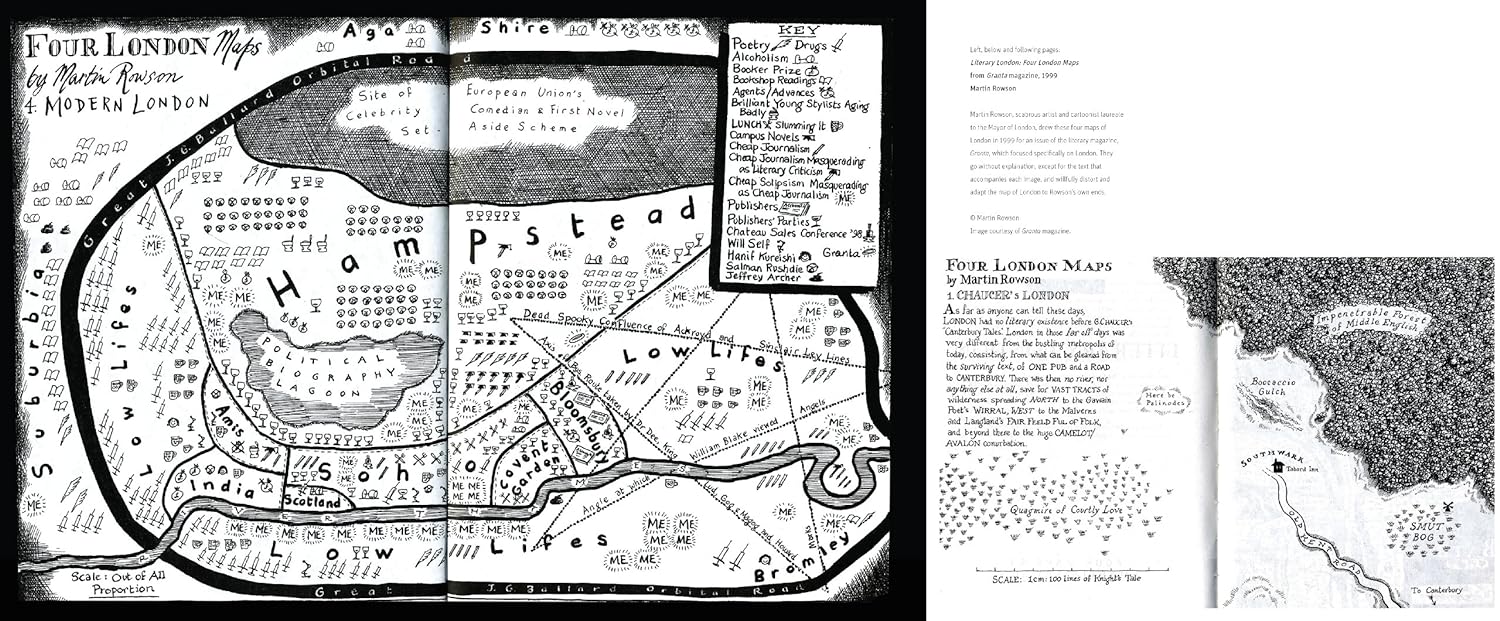 FOUR LONDON Maps
by Martin Rowson
4. MODERN LONDON
Aga Shire
Great J.G. Ballard Orbital Road
Site of
Celebrity
Set-
European Union's
Comedian & First Novel
Aside Scheme
KEY
Poetry Drugs
Alcoholism
Booker Prize
Bookshop Readings
Agents/Advances
Brilliant Young Stylists Aging
Badly
LUNCH Slumming It
Campus Novels
Cheap Journalism
Cheap Journalism Masquerading
as Literary Criticism
Cheap Solipsism Masquerading
as Cheap Journalism ME
Publishers
Publishers' Parties
Chateau Sales Conference '98
Will Self Granta
Hanif Kureishi
Salman Rushdie
Jeffrey Archer
Hampstead
Suburbia
Low Lifes
POLITICAL
BIOGRAPHY
LAGOON
Dead Spooky Confluence of Ackroyd and Sinclair Ley Lines
Low Lifes
Amis
India
Soho
Scotland
Covent
Garden
Bloomsbury
William Blake viewed Angels
Angle at which
RIVER THAMES
Low Lifes
Bromley
Scale: Out of All
Proportion
Great J.G. Ballard Orbital Road
Left, below and following pages:
Literary London: Four London Maps
from Granta magazine, 1999
Martin Rowson
Martin Rowson, scabrous artist and cartoonist laureate
to the Mayor of London, drew these four maps of
London in 1999 for an issue of the literary magazine,
Granta, which focused specifically on London. They
go without explanation, except for the text that
accompanies each image, and willfully distort and
adapt the map of London to Rowson's own ends.
© Martin Rowson
Image courtesy of Granta magazine.
FOUR LONDON MAPS
by Martin Rowson
1. CHAUCER'S LONDON
As far as anyone can tell these days,
LONDON had no literary existence before G.CHAUCER'S
'Canterbury Tales'. London in those far off days was
very different from the bustling metropolis of
today, consisting, from what can be gleaned from
the surviving text, of ONE PUB and a ROAD
to CANTERBURY. There was then no river, nor
anything else at all, save for VAST TRACTS of
wilderness spreading NORTH to the Gawain
Poet's WIRRAL, WEST to the Malverns
and Langland's FAIR FEELD FUL OF FOLK,
and beyond there to the huge CAMELOT/
AVALON conurbation.
Impenetrable Forest
of Middle English
Boccaccio
Gulch
Here be
Palinodes
SOUTHWARK
Tabard Inn
Quagmire of Courtly Love
OLD KENT ROAD
SMUT
BOG
SCALE: 1cm:100 lines of Knight's Tale
To Canterbury